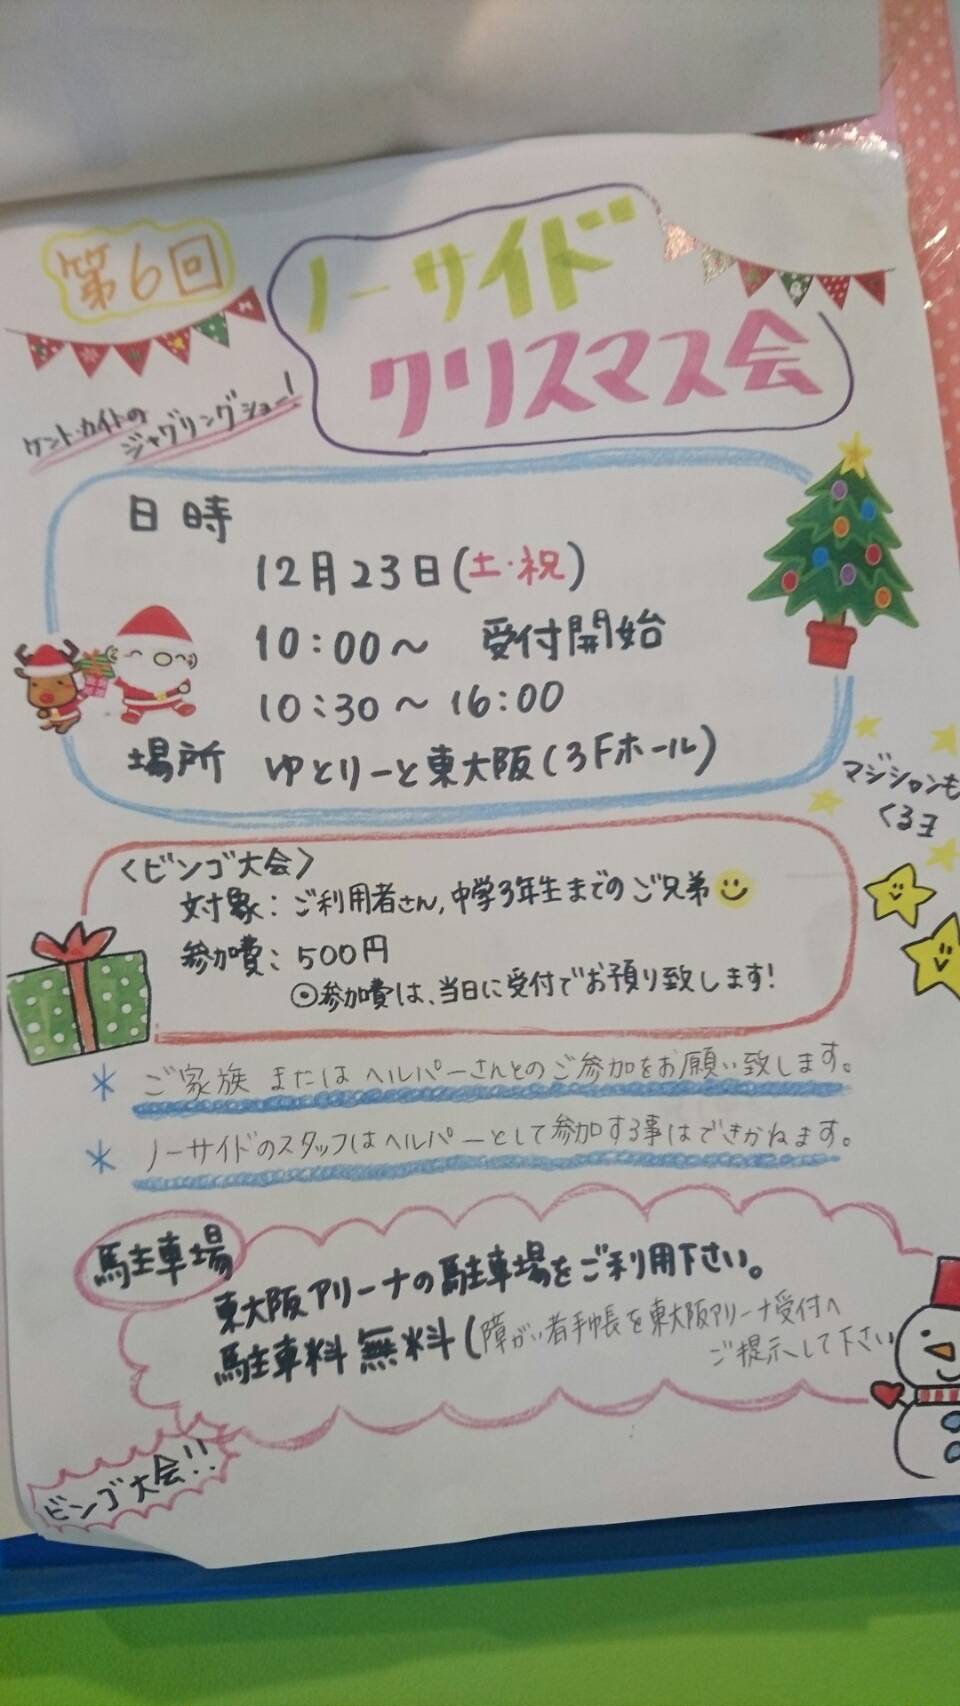 第6回
ノーサイド
クリスマス会
ケント・カイトの
ジャグリングショー!
日時
12月23日(土・祝)
10:00~ 受付開始
10:30~16:00
場所 ゆとりーと東大阪(3Fホール)
マジシャンも
くるヨ
〈ビンゴ大会〉
対象:ご利用者さん,中学3年生までのご兄弟
参加費:500円
◎参加費は、当日に受付でお預り致します!
* ご家族 またはヘルパーさんとのご参加をお願い致します。
* ノーサイドのスタッフはヘルパーとして参加する事はできかねます。
駐車場
東大阪アリーナの駐車場をご利用下さい。
駐車料無料(障がい者手帳を東大阪アリーナ受付へ
ご提示して下さい
ビンゴ大会!!